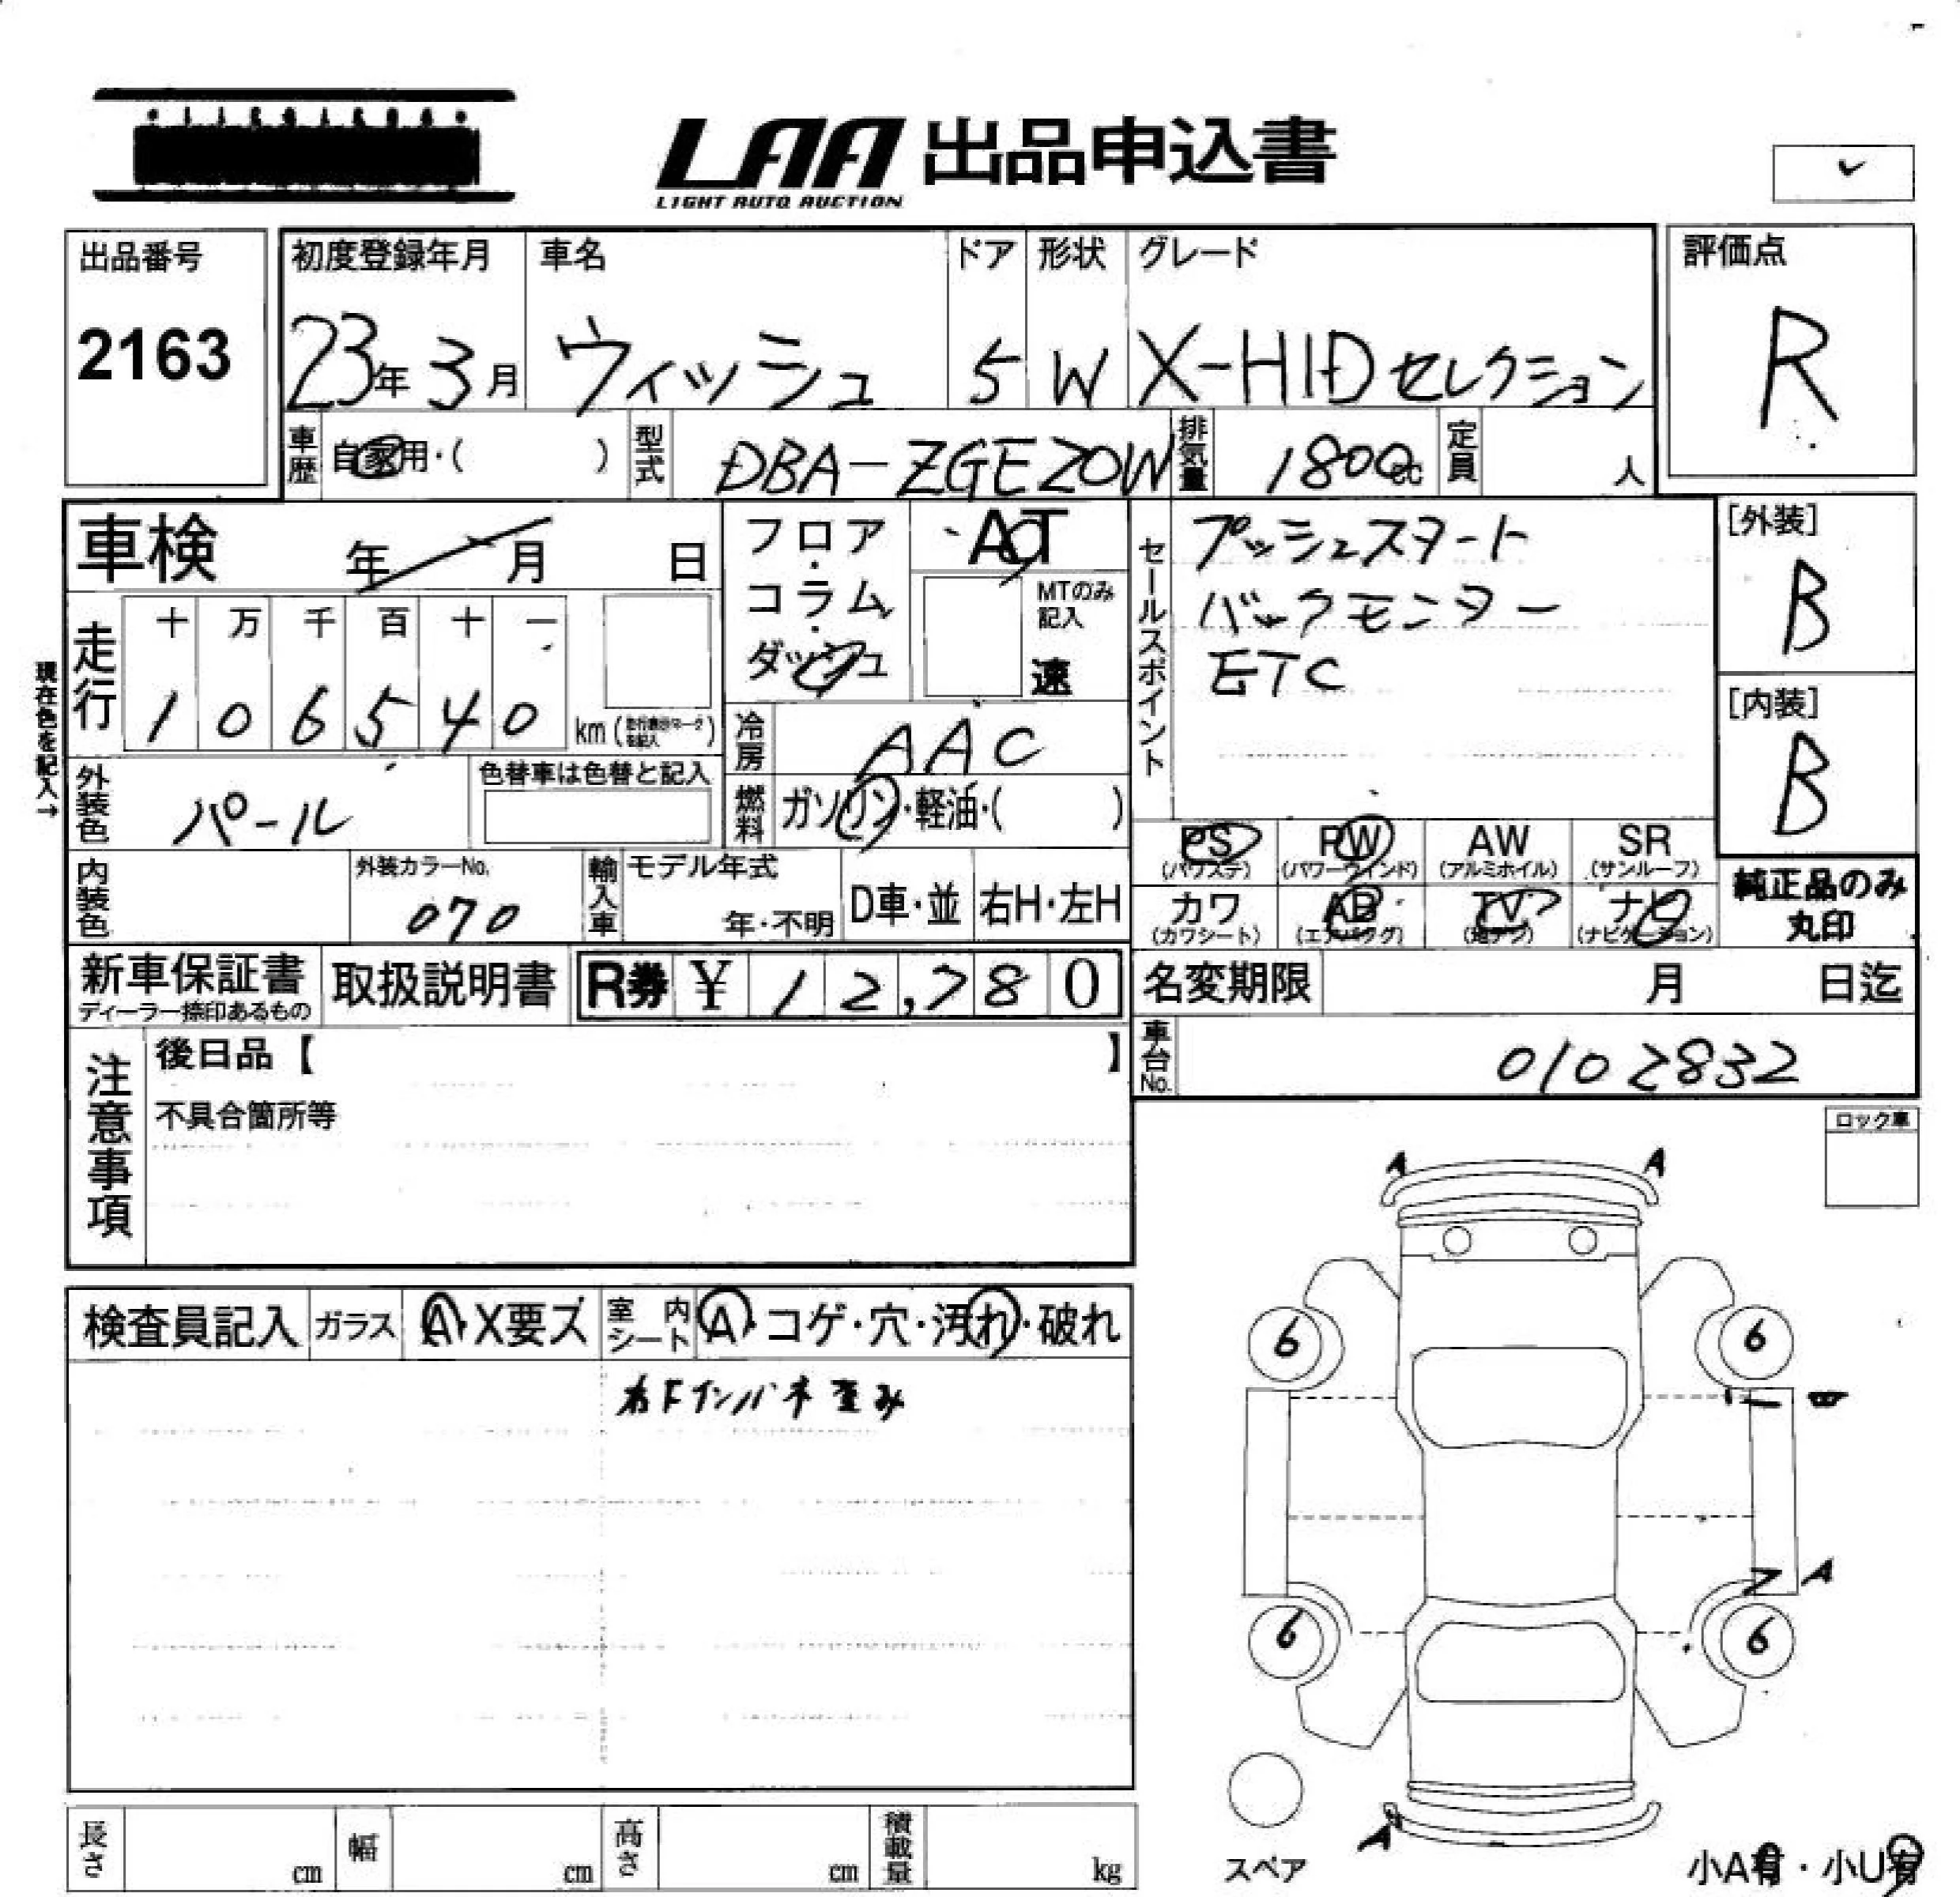 LAA 出品申込書
LIGHT AUTO AUCTION
出品番号
2163
初度登録年月
23年3月
車名
ウィッシュ
ドア
5
形状
W
グレード
X-HIDセレクション
評価点
R
車歴
自家用・( )
型式
DBA-ZGE20W
排気量
1800cc
定員
人
車検 年 月 日
フロア・コラム・ダッシュ
AT
MTのみ記入
速
セールスポイント
プッシュスタート
バックモニター
ETC
[外装]
B
[内装]
B
現在色を記入→
走行
十 万 千 百 十 一
1 0 6 5 4 0 km
冷房
AAC
外装色
パール
色替車は色替と記入
燃料
ガソリン・軽油・( )
PS (パワステ)
PW (パワーウィンド)
AW (アルミホイル)
SR (サンルーフ)
カワ (カワシート)
AB (エアバック)
TV (地デジ)
ナビ (ナビゲーション)
純正品のみ
丸印
内装色
外装カラーNo.
070
輸入車
モデル年式
年・不明
D車・並
右H・左H
新車保証書
ディーラー捺印あるもの
取扱説明書
R券 ¥ 12,780
名変期限 月 日迄
車台No.
0102832
注意事項
後日品【 】
不具合箇所等
ロック車
検査員記入
ガラス
A・X要ズ
室内シート
A・コゲ・穴・汚れ・破れ
右Fインパネ歪み
A A
6 6
B
A
6 6
A
スペア
小A有・小U有
長さ cm
幅 cm
高さ cm
積載量 kg